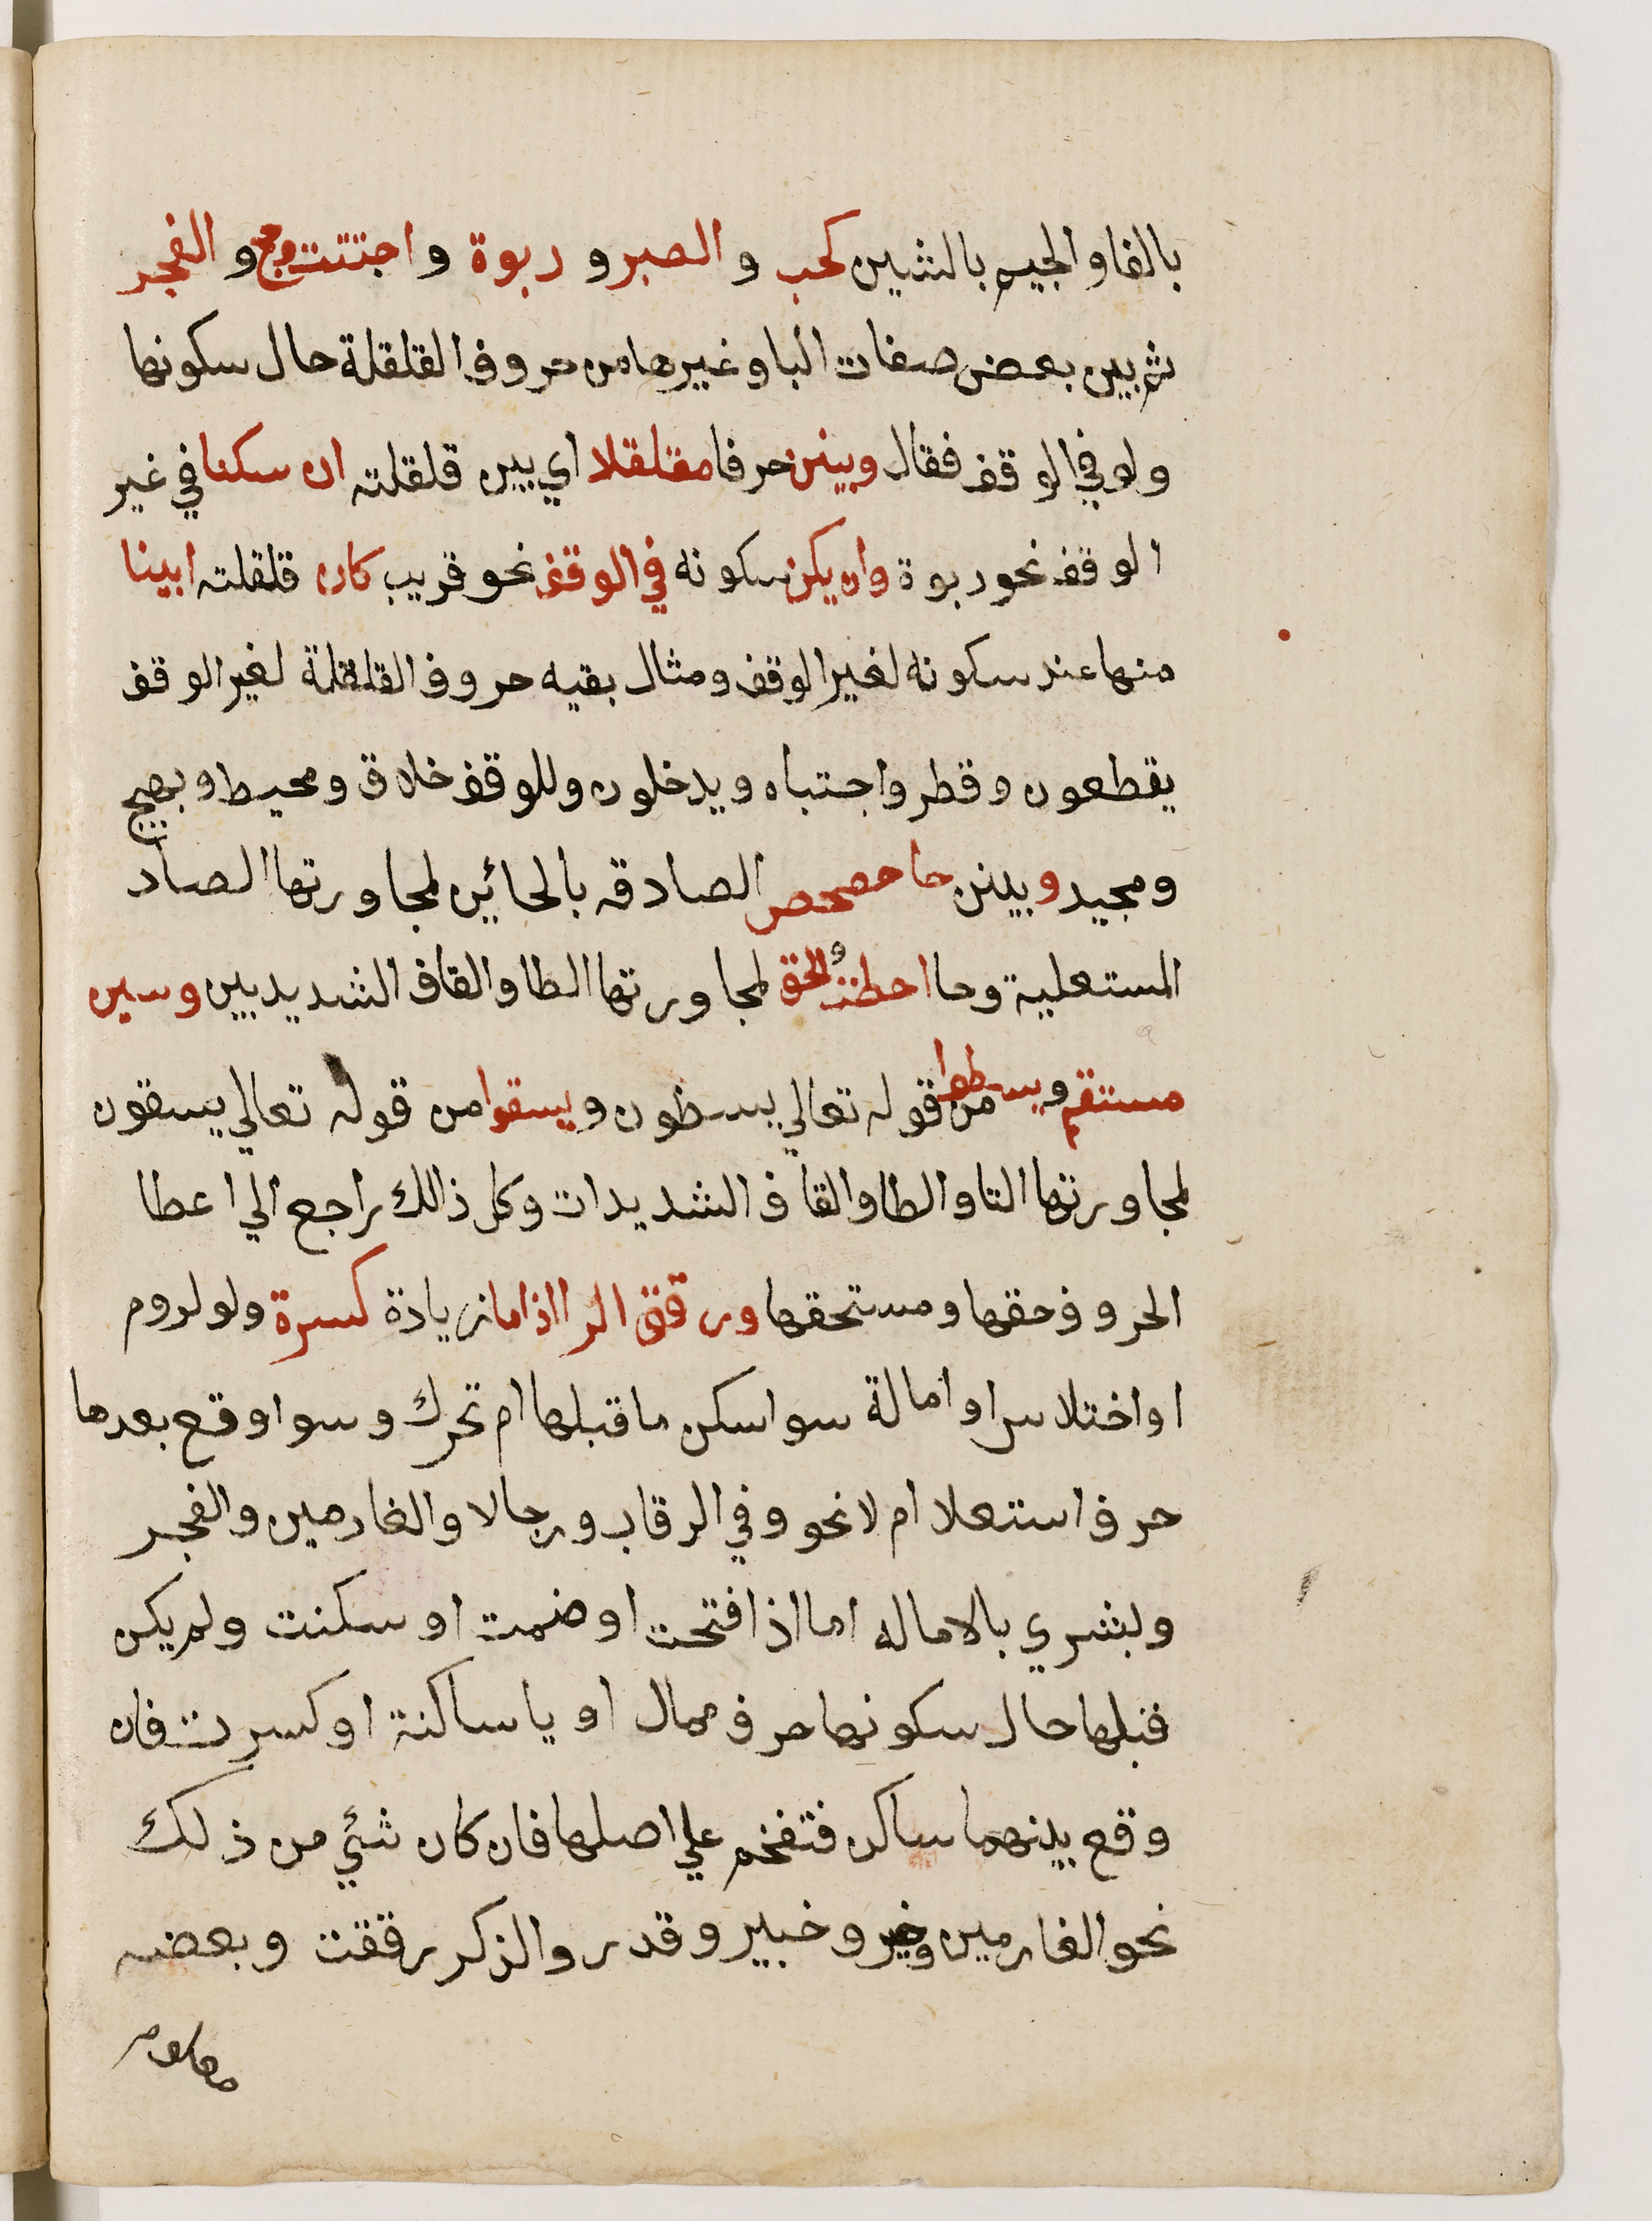 بالفا والجيم بالشين كحب والصبر و ربوة و اجتثت وحج و الفجر
ثم بين بعض صفات البا وغيرها من حروف القلقلة حال سكونها
ولو في الوقف فقال وبينن حرفا مقلقلا اي بين قلقلته ان سكنا في غير
الوقف نحو ربوة وان يكن سكونه في الوقف نحو قريب كان قلقلته ابينا
منها عند سكونه لغير الوقف ومثال بقيه حروف القلقلة لغير الوقف
يقطعون وقطر واجتباه ويدخلون وللوقف خلاق ومحيط وبهيج
ومجيد وبينن حا حصحص الصادقه بالحائين لمجاورتها الصاد
المستعلية وحا احطت والحق لمجاورتها الطا والقاف الشديديين وسين
مستقم ويسطوا من قوله تعالي يسطون ويسقوا من قوله تعالي يسقون
لمجاورتها التا والطا والقاف الشديدات وكل ذالك راجع الي اعطا
الحروف حقها ومستحقها ورققن الرا اذا ما زيادة كسرة ولو لروم
او اختلاس او امالة سوا سكن ما قبلها ام تحرك وسوا وقع بعدها
حرف استعلا ام لا نحو وفي الرقاب ورجالا والغارمين والفجر
ولبشري بالاماله اما اذا فتحت او ضمت او سكنت ولم يكن
قبلها حال سكونها حرف ممال او يا ساكنة او كسرت فان
وقع بينهما ساكن فتفخم علي اصلها فان كان شئي من ذلك
نحو الغارمين وخير وخبير وقدر والذكر رققت وبعضه